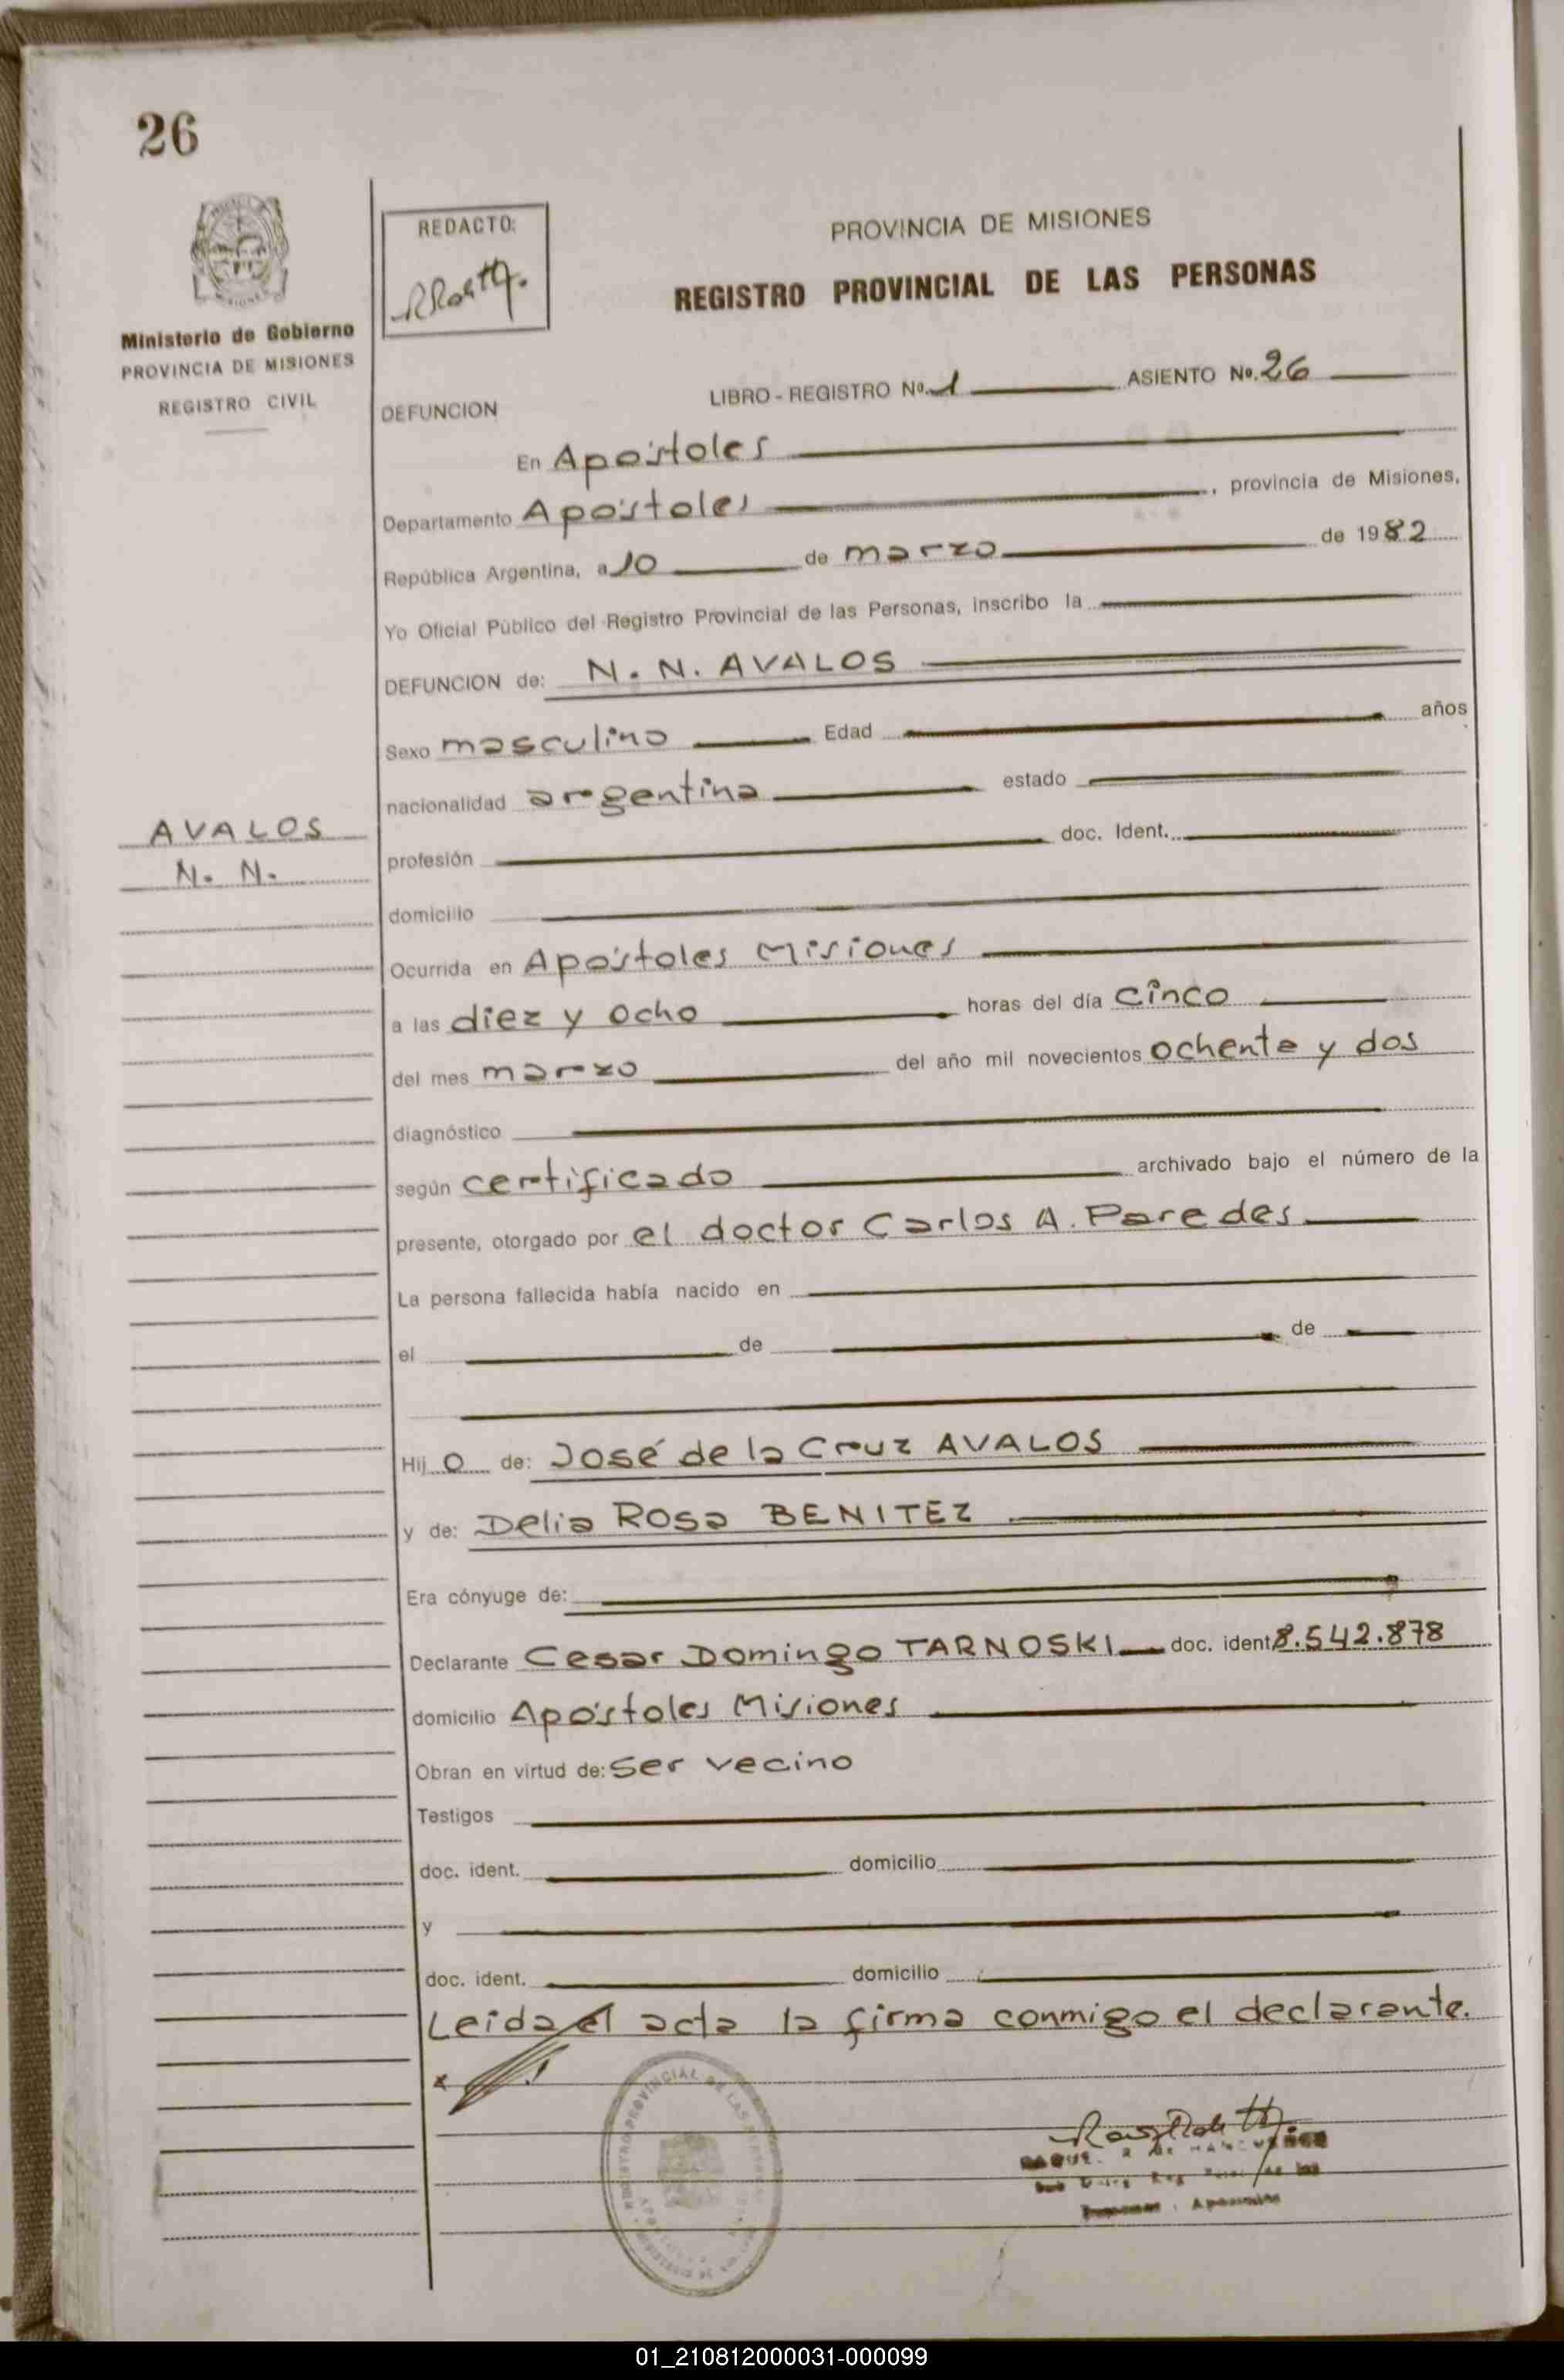 26
Ministerio de Gobierno
PROVINCIA DE MISIONES
REGISTRO CIVIL
REDACTO:
PROVINCIA DE MISIONES
REGISTRO PROVINCIAL DE LAS PERSONAS
LIBRO - REGISTRO Nº 1 ASIENTO Nº. 26
DEFUNCION
En Apóstoles
Departamento Apóstoles, provincia de Misiones,
República Argentina, a 10 de marzo de 1982
Yo Oficial Público del Registro Provincial de las Personas, inscribo la
DEFUNCION de: N. N. AVALOS
Sexo masculino Edad años
nacionalidad argentina estado
AVALOS
N. N.
profesión doc. Ident.
domicilio
Ocurrida en Apóstoles Misiones
a las diez y ocho horas del día cinco
del mes marzo del año mil novecientos ochenta y dos
diagnóstico
según certificado archivado bajo el número de la
presente, otorgado por el doctor Carlos A. Paredes
La persona fallecida había nacido en
el de de
Hij o de: José de la Cruz AVALOS
y de: Delia Rosa BENITEZ
Era cónyuge de:
Declarante Cesar Domingo TARNOSKI doc. ident 8.542.878
domicilio Apóstoles Misiones
Obran en virtud de: ser vecino
Testigos
doc. ident. domicilio
y
doc. ident. domicilio
Leida el acta la firma conmigo el declarante.
REGISTRO PROVINCIAL DE LAS
01_210812000031-000099